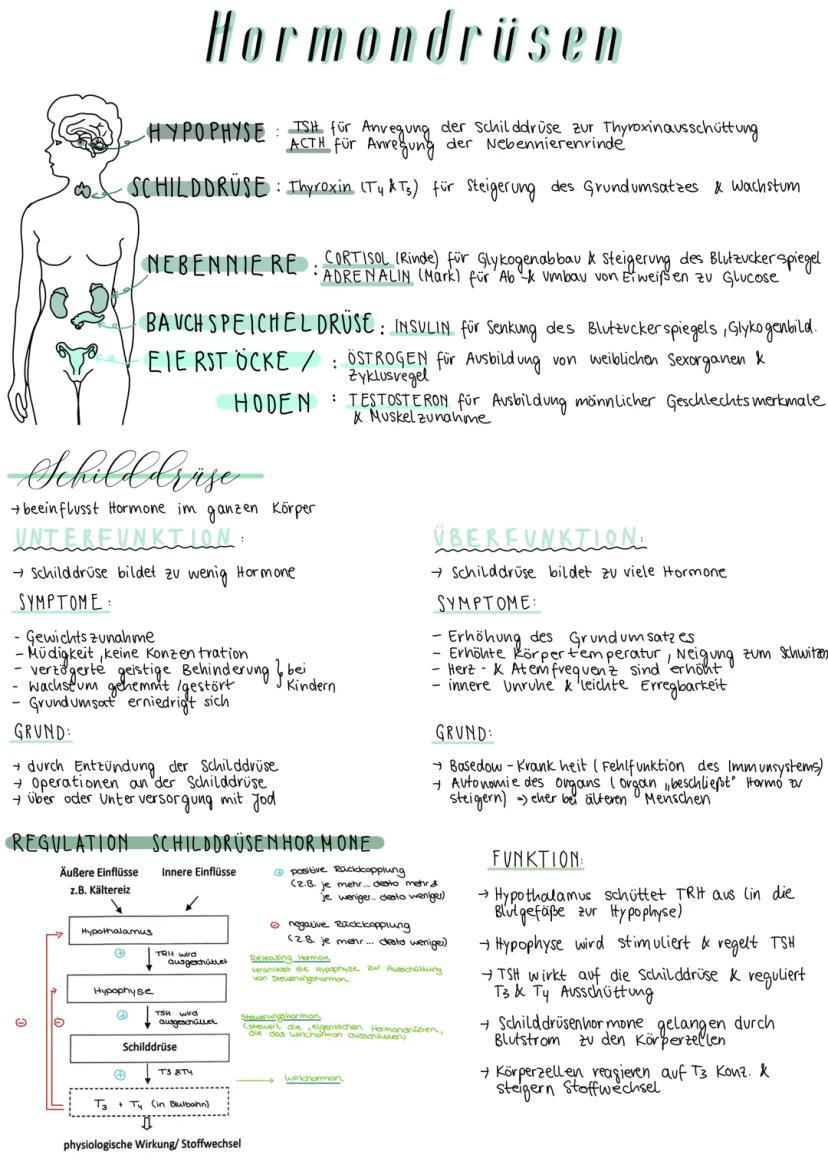 Hormondrüsen
HYPOPHYSE : TSH für Anregung der Schilddrüse zur Thyroxinausschüttung
ACTH für Anregung der Nebennierenrinde
SCHILDDRÜSE : Thyroxin (T4 & T3) für Steigerung des Grundumsatzes & Wachstum
NEBENNIERE : CORTISOL (Rinde) für Glykogenabbau & Steigerung des Blutzuckerspiegel
ADRENALIN (Mark) für Ab -& Umbau von Eiweißen zu Glucose
BAUCHSPEICHELDRÜSE : INSULIN für Senkung des Blutzuckerspiegels, Glykogenbild.
EIERSTÖCKE / : ÖSTROGEN für Ausbildung von weiblichen Sexorganen &
Zyklusregel
HODEN : TESTOSTERON für Ausbildung männlicher Geschlechtsmerkmale
& Muskelzunahme
Schilddrüse
→ beeinflusst Hormone im ganzen Körper
UNTERFUNKTION :
→ Schilddrüse bildet zu wenig Hormone
SYMPTOME:
- Gewichtszunahme
- Müdigkeit, keine Konzentration
- verzögerte geistige Behinderung } bei
- Wachstum gehemmt /gestört } Kindern
- Grundumsat erniedrigt sich
GRUND:
→ durch Entzündung der Schilddrüse
→ Operationen an der Schilddrüse
→ über oder Unterversorgung mit Jod
ÜBERFUNKTION:
→ Schilddrüse bildet zu viele Hormone
SYMPTOME:
- Erhöhung des Grundumsatzes
- Erhöhte Körpertemperatur, Neigung zum Schwitzen
- Herz - & Atemfrequenz sind erhöht
- innere Unruhe & leichte Erregbarkeit
GRUND:
→ Basedow - Krankheit (Fehlfunktion des Immunsystems)
→ Autonomie des Organs (Organ „beschließt" Hormo zu
steigern) => eher bei älteren Menschen
REGULATION SCHILDDRÜSENHORMONE
Äußere Einflüsse Innere Einflüsse
z.B. Kältereiz
Hypothalamus
⊕ TRH wird
ausgeschüttet
Hypophyse
⊕ TSH wird
ausgeschüttet
⊖ ⊖
Schilddrüse
⊕ T3 & T4
T3 + T4 (in Blutbahn)
physiologische Wirkung/ Stoffwechsel
⊕ positive Rückkopplung
(z.B. je mehr... desto mehr &
je weniger.. desto weniger)
⊖ negative Rückkopplung
(z.B. je mehr... desto weniger)
Releasing Hormon
veranlasst die Hypophyse zur Ausschüttung
von Steuerungshormon
Steuerungshormon
(steuert die „eigentlichen Hormondrüsen,
die das Wirkhormon ausschütten)
→ Wirkhormon
FUNKTION:
→ Hypothalamus schüttet TRH aus (in die
Blutgefäße zur Hypophyse)
→ Hypophyse wird stimuliert & regelt TSH
→ TSH wirkt auf die Schilddrüse & reguliert
T3 & T4 Ausschüttung
→ Schilddrüsenhormone gelangen durch
Blutstrom zu den Körperzellen
→ Körperzellen reagieren auf T3 Konz. &
steigern Stoffwechsel